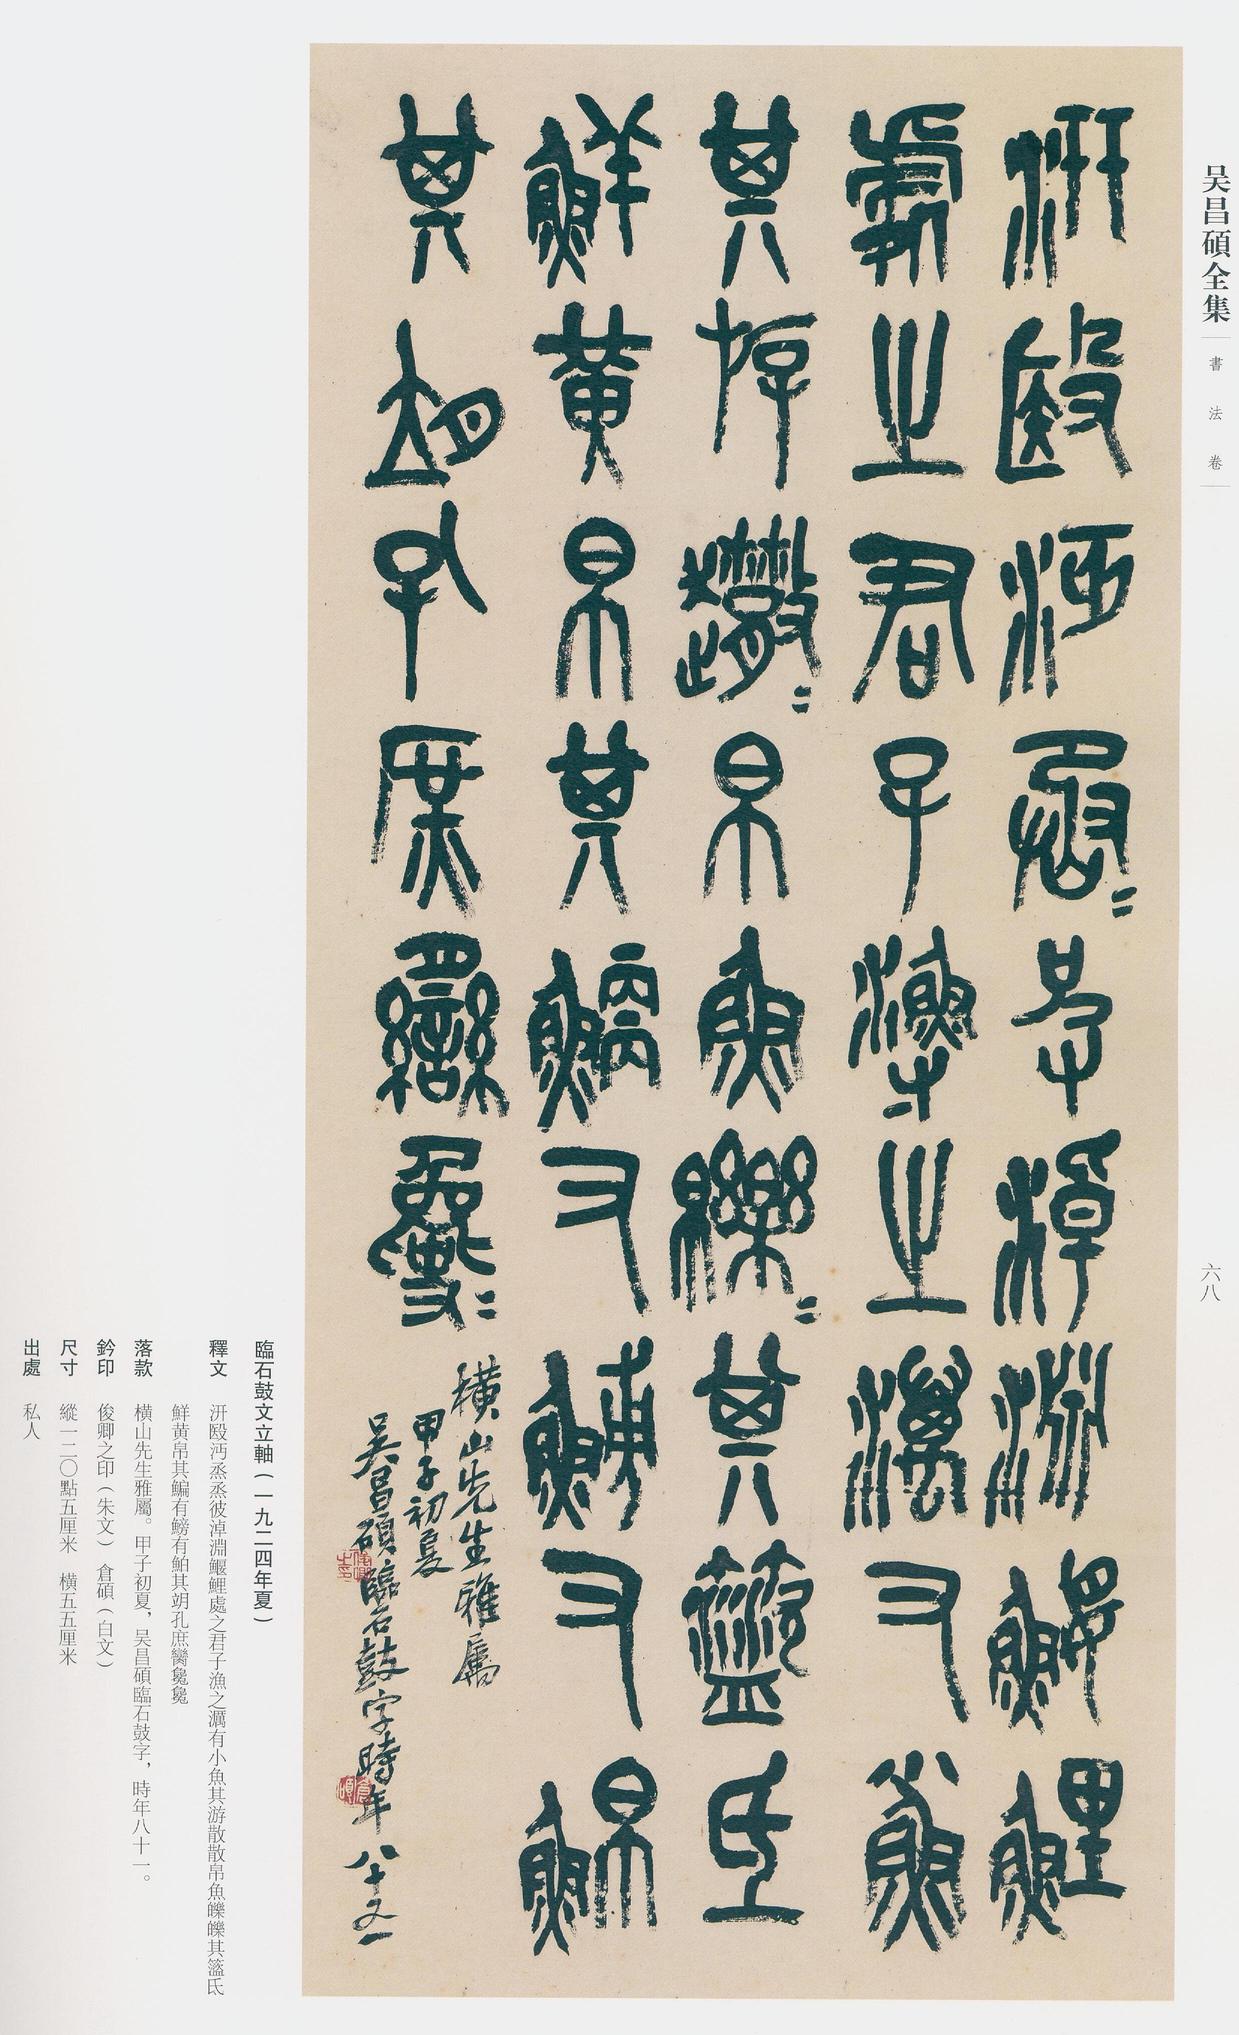 吴昌碩全集
書法卷
六八
汧殹沔烝〻彼淖淵鰋鯉
處之君子漁之澫又小魚
其斿䟃〻帛魚皪〻其盜氐
鮮黃帛其鯾又䱷又鮊
其朔孔庶臠㲋〻
橫山先生雅屬
甲子初夏
吴昌碩臨石鼓字時年八十又一
臨石鼓文立軸（一九二四年夏）
釋文 汧殹沔烝烝彼淖淵鰋鯉處之君子漁之澫有小魚其游散散帛魚皪皪其盜氐
鮮黄帛其鯿有鰟有鮊其朔孔庶臠㲋㲋
落款 橫山先生雅屬。甲子初夏，吴昌碩臨石鼓字，時年八十一。
鈐印 俊卿之印（朱文） 倉碩（白文）
尺寸 縱一二〇點五厘米 橫五五厘米
出處 私人